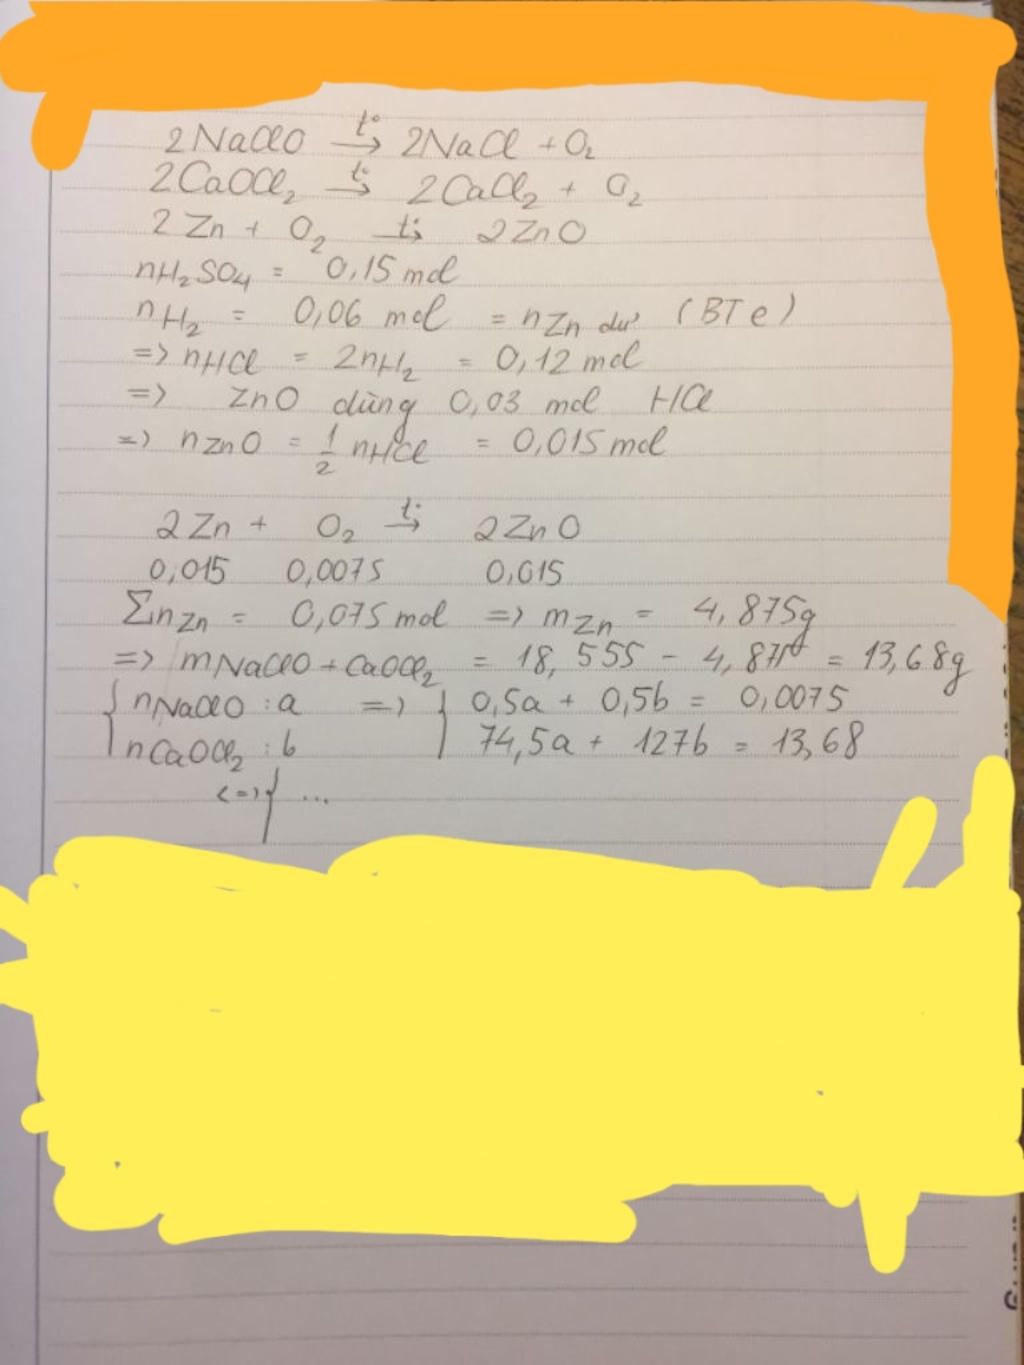 2NaClO t°→ 2NaCl + O₂
2CaOCl₂ t°→ 2CaCl₂ + O₂
2Zn + O₂ t°→ 2ZnO
nH₂SO₄ = 0,15 mol
nH₂ = 0,06 mol = nZn dư (BTe)
=> nHCl = 2nH₂ = 0,12 mol
=> ZnO dùng 0,03 mol HCl
=> nZnO = 1/2 nHCl = 0,015 mol
2Zn + O₂ t°→ 2ZnO
0,015 0,0075 0,015
ΣnZn = 0,075 mol => mZn = 4,875g
=> mNaClO + CaOCl₂ = 18,555 - 4,875 = 13,68g
{ nNaClO : a => { 0,5a + 0,5b = 0,0075
nCaOCl₂ : b 74,5a + 127b = 13,68
<=> { ...